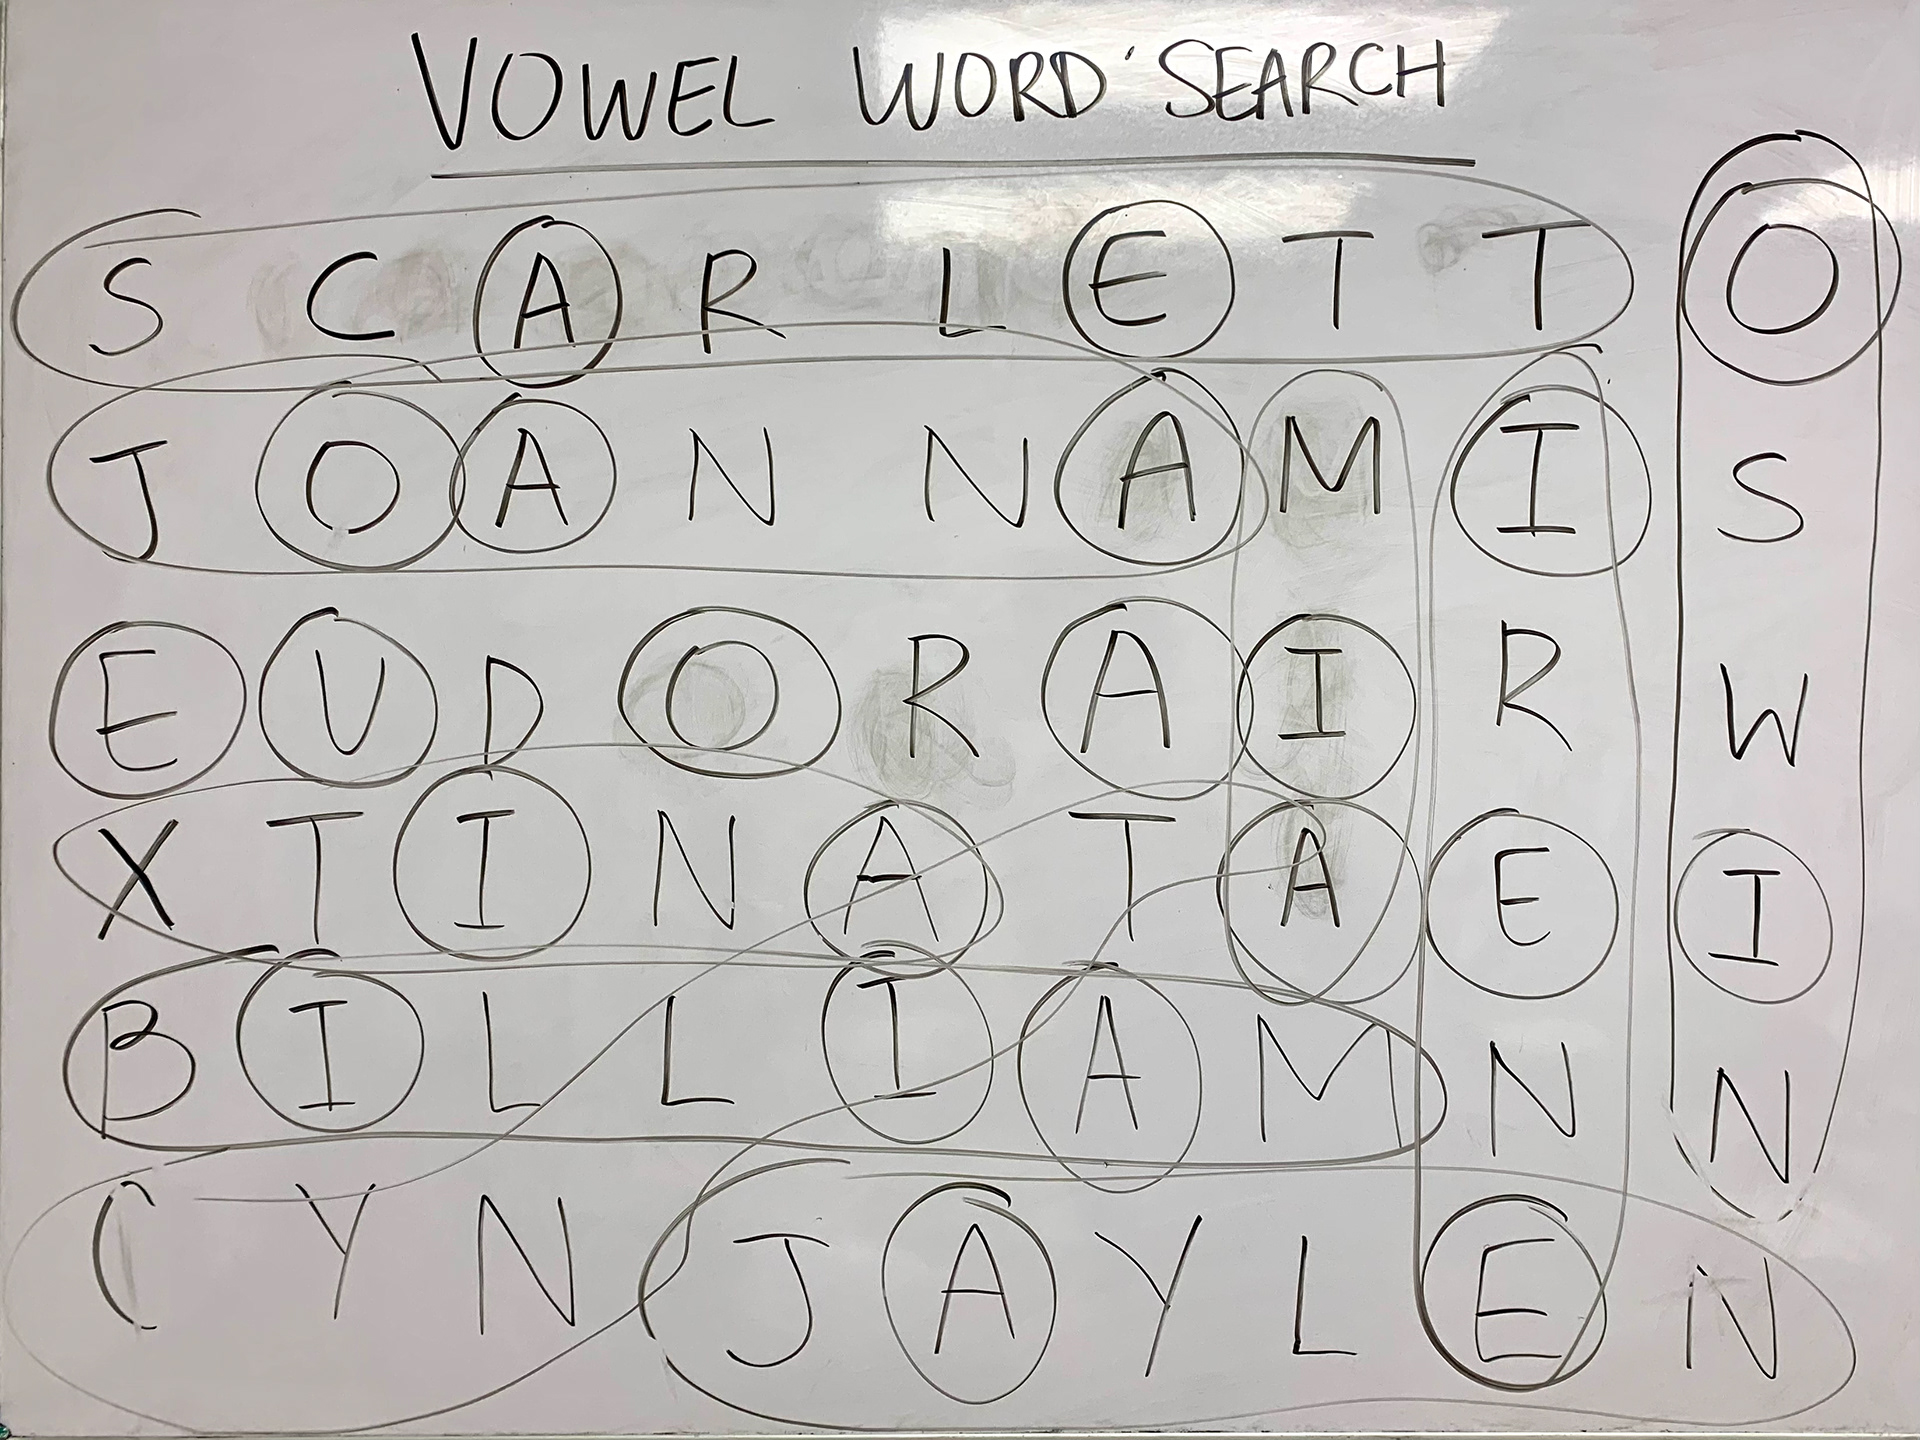 VOWEL WORD SEARCH
S C A R L E T T O
J O A N N A M I S
E U D O R A I R W
X T I N A T A E I
B I L L I A M N N
C Y N J A Y L E N